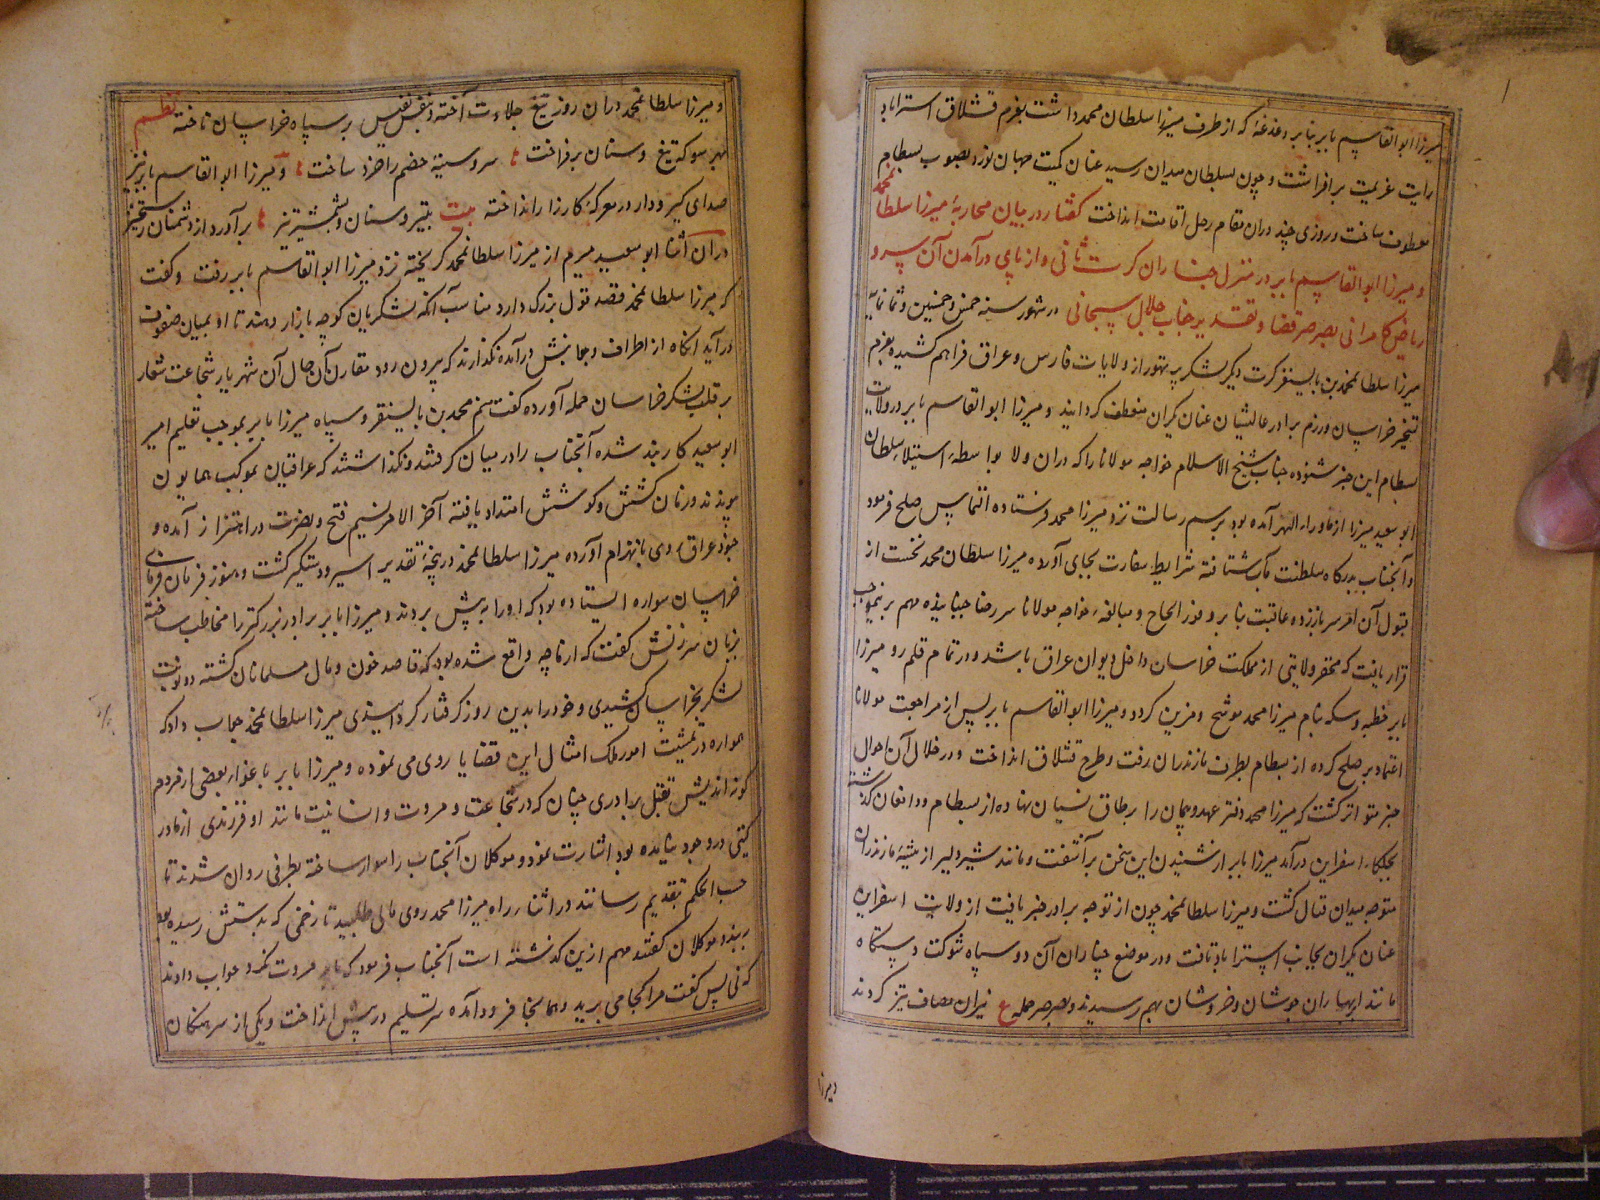 میرزا ابوالقاسم بابر بنابر دغدغه که از طرف میرزا سلطان محمد داشت بعزم قشلاق استراباد
رایت عزیمت برافراشت و چون بسلطان میدان رسید عنان کمیت جهان نورد بصوب بسطام
معطوف ساخت و روزی چند دران مقام رحل اقامت انداخت گفتار در بیان محاربهٔ میرزا سلطان محمد
و میرزا ابوالقاسم بابر در منزل چناران کرت ثانی و از پای درآمدن آن سرو
ریاض کامرانی بصرصر قضا و تقدیر جناب جلال سبحانی در شهور سنه خمس و خمسین و ثمانمایه
میرزا سلطان محمد بن بایسنقر کرت دیگر لشکر پر تهور از ولایات فارس و عراق فراهم کشیده بعزم
تسخیر خراسان و رزم برادر عالیشان عنان یکران منعطف گردانید و میرزا ابوالقاسم بابر در ولایت
بسطام این خبر شنوده جناب شیخ الاسلام خواجه مولانا را که دران ولا بواسطهٔ استیلاء سلطان
ابو سعید میرزا از ماوراءالنهر آمده بود برسم رسالت نزد میرزا محمد فرستاده التماس صلح فرمود
و آنجناب بدرگاه سلطنت مآب شتافته شرایط سفارت بجای آورده میرزا سلطان محمد نخست از
قبول آن امر سر باز زده عاقبت بنابر وفور الحاح و مبالغهٔ خواجه مولانا سر رضا جنبانیده مهم برینموجب
قرار یافت که محقر ولایتی از مملکت خراسان داخل دیوان عراق باشد و در تمام قلمرو میرزا
بابر خطبه و سکه بنام میرزا محمد موشح و مزین گردد و میرزا ابوالقاسم بابر پس از مراجعت مولانا
اعتماد بر صلح کرده از بسطام بطرف مازندران رفت و طرح قشلاق انداخت و در خلال آن احوال
خبر متواتر گشت که میرزا محمد دفتر عهد و پیمان را بر طاق نسیان نهاده از بسطام و دامغان گذشته
بجلکاء اسفراین درآمد میرزا بابر از شنیدن این سخن برآشفت و مانند شیر دلیر از بیشهٔ مازندران
متوجه میدان قتال گشت و میرزا سلطان محمد چون از توجه برادر خبر یافت از ولایت اسفراین
عنان یکران بجانب استراباد تافت و در موضع چناران آن دو سپاه شوکت دستگاه
مانند ابر بهاران جوشان و خروشان بهم رسیدند و بصرصر حمله ع نیران مصاف تیز کردند
و میرزا
و میرزا سلطان محمد دران روز تیغ جلادت آخته و بنفس نفیس بر سپاه خراسان تاخته نظم
بهر سو که تیغ و سنان برفراخت سر و سینهٔ خصم را خرد ساخت و میرزا ابوالقاسم بابر نیز
صدای گیر و دار در معرکهٔ کارزار انداخته بیت بتیر و سنان و بشمشیر تیز برآورد از دشمنان رستخیز
دران اثنا ابو سعید میرم از میرزا سلطان محمد گریخته نزد میرزا ابوالقاسم بابر رفت و گفت
که میرزا سلطان محمد قصد قول بزرگ دارد مناسب آنکه لشکریان کوچه بازار دهند تا او بمیان صفوف
درآید آنگاه از اطراف و جوانبش درآمده نگذارند که بیرون رود مقارن آن حال آن شهریار شجاعت شعار
بر قلب لشکر خراسان حمله آورده گفت منم محمد بن بایسنقر و سپاه میرزا بابر بموجب تعلیم امیر
ابو سعید کاربند شده آنجناب را در میان گرفتند و نگذاشتند که عراقیان بموکب همایون
پیوندند و زمان کشش و کوشش امتداد یافته آخر الامر نسیم فتح و نصرت در اهتزاز آمده و
جنود عراق روی بانهزام آورده میرزا سلطان محمد در پنجهٔ تقدیر اسیر و دستگیر گشت و هنوز فرمان فرمای
خراسان سواره ایستاده بود که او را به پیش بردند و میرزا بابر برادر بزرگتر را مخاطب ساخته
بزبان سرزنش گفت که از ما چه واقع شده بود که قاصد خون و مال مسلمانان گشته دو نوبت
لشکر بخراسان کشیدی و خود را بدین روز گرفتار گردانیدی میرزا سلطان محمد جواب داد که
همواره در تمشیت امور ملک امثال این قضایا روی می نموده و میرزا بابر باغواء بعضی از مردم
کوته اندیش بقتل برادری چنان که در شجاعت و مروت و انسانیت مانند او فرزندی از مادر
گیتی در وجود نیامده بود اشارت نمود و موکلان آنجناب را سوار ساخته بطرفی روان شدند تا
حسب الحکم بتقدیم رسانند در اثناء راه میرزا محمد روی مالی طلبید تا زخمی که بدستش رسیده بود
ببندد موکلان گفتند مهم ازین گذشته است آنجناب فرمود که بابر مروت نکرد جواب دادند
که نی پس گفت مرا کجا می برید و همانجا فرود آمده سر تسلیم در پیش انداخت و یکی از سرهنگان